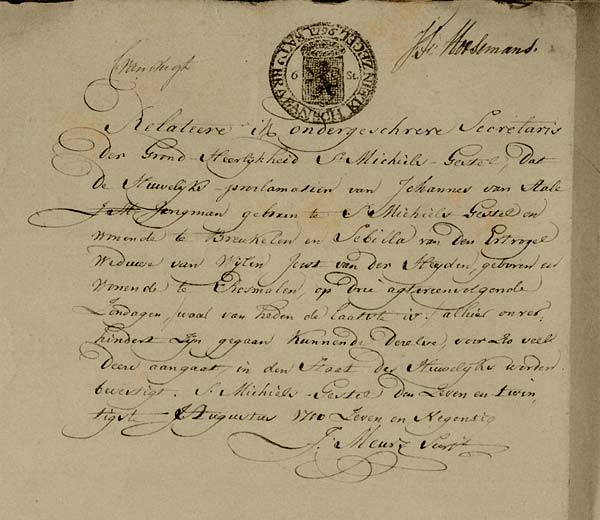 1796
BATS: BRABANDSCH KLEIN ZEGEL
6 St.
Js: Moesemans.
Relateere ik ondergeschreve Secretaris
der Grond-Heerlijkheid St Michiels-Gestel, dat
de Huwelijks-proclamatien van Johannes van
J:M: Jongman geboren te St Michiels Gestel en
wonende te Breukelen en Sebilla van den Ertvogel
Weduwe van Wijlen Joost van der Heyden, geboren en
wonende te Rosmalen op drie agtereenvolgende
Zondagen, waar van heden de laatste is: alhier onver:
hindert zijn gegaan kunnende dezelve, voor zo veel
deese aangaat, in den staat des Huwelijks worden
bevestigt. St Michiels-Gestel den Zeven en twin
tigste Augustus 1700 Zeven en Negentig
Secrts